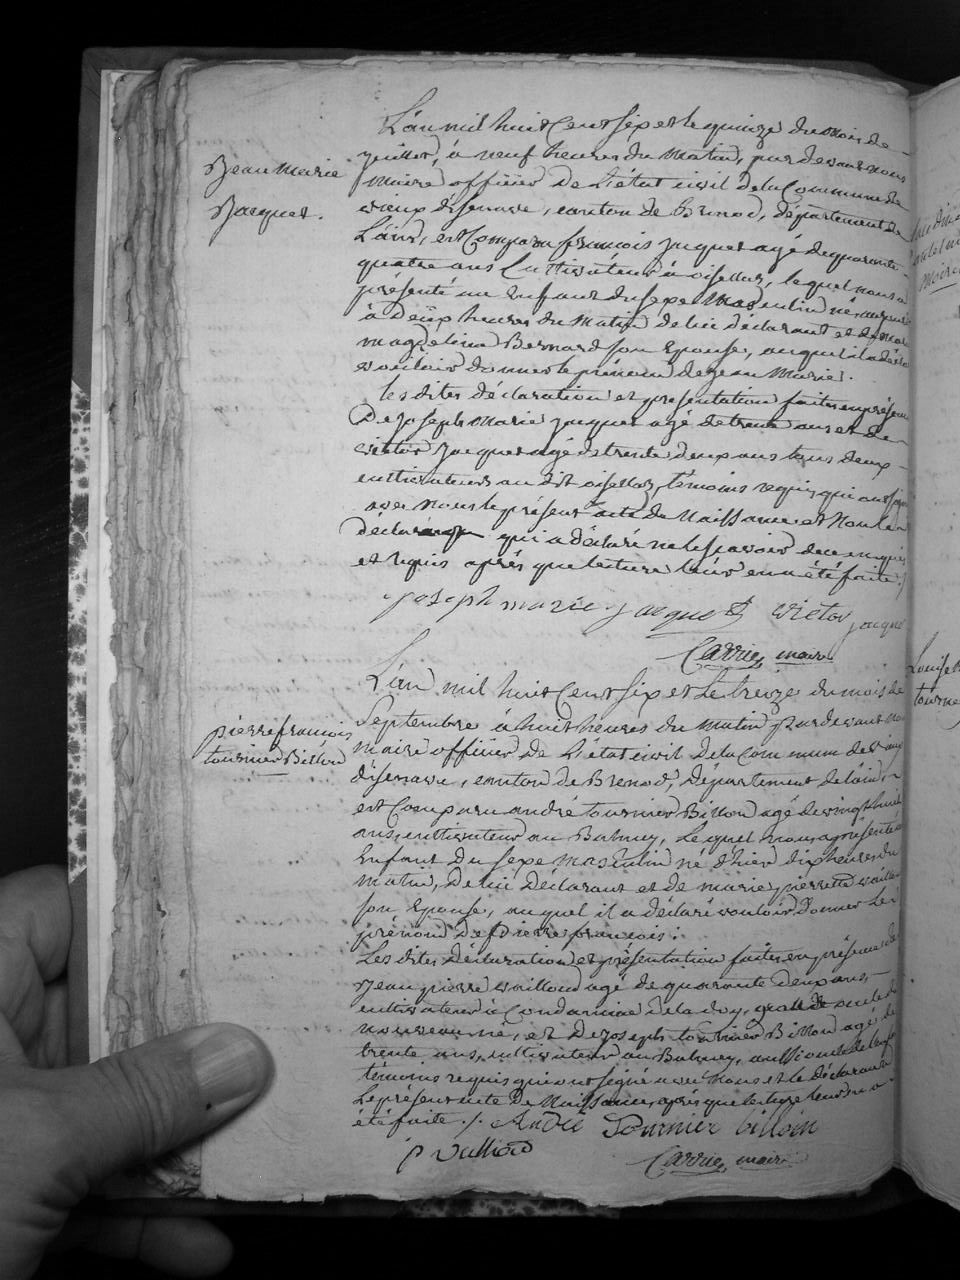 Jean Marie
Jacquet.
L'an mil huit Cent Six et le quinze du mois de
juillet, à neuf heures du Matin, par devant nous
maire officier De L'état civil de la Commune de
vieux disenave, canton de Brenod, département de
L'ain, est Comparu françois jacquet agé de quarante
quatre ans Cultivateur à oisellas, lequel nous a
présenté un Enfant du Sexe Masculin né,
à deux heures du Matin de lui déclarant et de
magdelina Bernard Son Epouse, auquel il a déclaré
vouloir donner le prénom de jean Marie.
Les dites déclaration et presentation faites en présence
De joseph Marie jacquet agé de trente ans et de
victor jacquet agé de trente deux ans tous deux
cultivateurs au dit oisellas, témoins requis qui ont signé
avec nous le présent acte de Naissance et Non le
déclarant qui a déclaré ne le scavoir de ce enquis
et requis après que lecture leur en a été faite ./
joseph marie jacquet victor jacquet
Carrier, maire
pierre francois
tournier Billon
L'an mil huit Cent Six et le treize du mois de
Septembre à huit heures du Matin par devant nous
maire officier De L'état civil De la Commune de vieux
disenave, canton de Brenod, Département de lain,
est Comparu andré tournier Billon agé de vingt huit
ans cultivateur au Balmey, Lequel nous a présenté
Enfant du Sexe Masculin né d'hier dix heures du
matin, De lui Déclarant et de marie pierrette vuillod
Son Epouse, auquel il a déclaré vouloir Donner Le
prénom de pierre francois.
Les dites Déclaration et présentation faites en présence de
jean pierre vuilloud agé de quarante deux ans
cultivateur à Condamine de la doy, oncle du
nouveau né, et De joseph tournier Billon agé de
trente ans, cultivateur au Balmey, aussi oncle
témoins requis qui ont signé avec Nous et le déclarant
Le présent acte De Naissance, après que lecture leur en a
été faite ./. André Tournier billoin
p vulliod
Carrier, maire